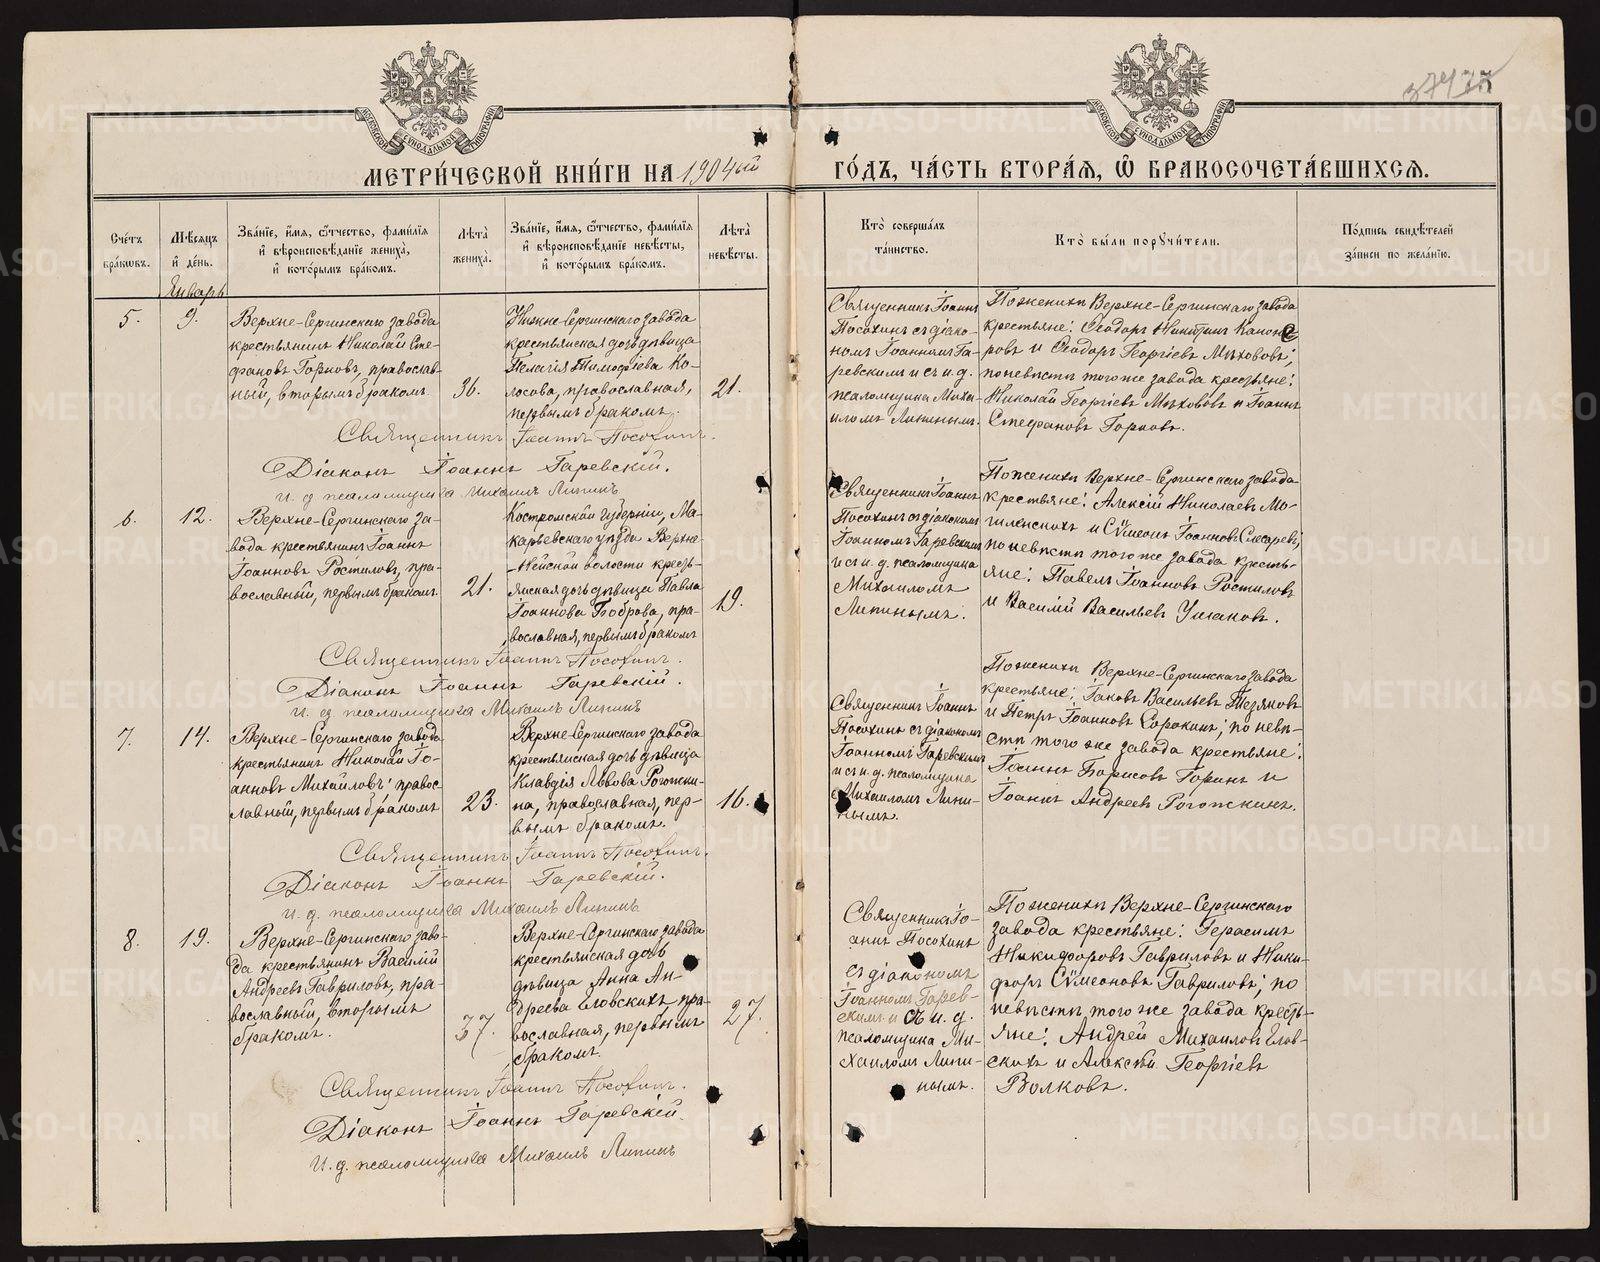 МЕТРИ́ЧЕСКОЙ КНИ́ГИ НА 1904ый
ГО́ДЪ, ЧА́СТЬ ВТОРА́Я, Ѽ БРАКОСОЧЕТА́ВШИХСЯ.
Сче́тъ бра́кѡвъ.
Мѣ́сяцъ и҆ де́нь.
Зва́нїе, и҆́мя, ѻ҆́тчество, фами́лїя и҆ вѣроисповѣ́данїе жениха̀, и҆ кото́рымъ бра́комъ.
Лѣта̀ жениха̀.
Зва́нїе, и҆́мя, ѻ҆́тчество, фами́лїя и҆ вѣроисповѣ́данїе невѣ́сты, и҆ кото́рымъ бра́комъ.
Лѣта̀ невѣ́сты.
Кто̀ соверша́лъ та́инство.
Кто̀ бы́ли порꙋчи́тели.
По́дпись свидѣ́телей за́писи по жела́нїю.
Январь
5.
9.
Верхне-Сергинскаго завода
крестьянинъ Николай Сте-
фановъ Горновъ, православ-
ный, вторымъ бракомъ.
36.
Нижне-Сергинскаго завода
крестьянская дочь дѣвица
Пелагія Тимофіева Ко-
лосова, православная,
первымъ бракомъ.
21.
Священникъ Іоаннъ
Посохинъ съ діако-
номъ Іоанномъ Га-
ревскимъ и съ и. д.
псаломщика Миха-
иломъ Липинымъ.
По женихѣ Верхне-Сергинскаго завода
крестьяне: Ѳеодоръ Никитинъ
и Ѳеодоръ Георгіевъ Мѣховъ;
по невѣстѣ того же завода крестьяне:
Николай Георгіевъ и Іоаннъ
Стефановъ Горновъ.
Священникъ Іоаннъ Посохинъ.
Діаконъ Іоаннъ Гаревскій.
И. д. псаломщика Михаилъ Липинъ
6.
12.
Верхне-Сергинскаго за-
вода крестьянинъ Іоаннъ
Іоанновъ Ростиловъ, пра-
вославный, первымъ бракомъ.
21.
Костромской губерніи, Ма-
карьевскаго уѣзда Верхне
-Нейской волости кресть-
янская дочь дѣвица Павла
Іоаннова Боброва, пра-
вославная, первымъ бракомъ
19.
Священникъ Іоаннъ
Посохинъ съ діакономъ
Іоанномъ Гаревскимъ
и съ и. д. псаломщика
Михаиломъ
Липинымъ.
По женихѣ Верхне-Сергинскаго завода
крестьяне: Алексій Николаевъ Мо-
гиленскихъ и Сѵмеонъ Іоанновъ Слесаревъ;
по невѣстѣ того же завода кресть-
яне: Павелъ Іоанновъ Ростиловъ
и Василій Васильевъ Ушаковъ.
Священникъ Іоаннъ Посохинъ.
Діаконъ Іоаннъ Гаревскій.
И. д. псаломщика Михаилъ Липинъ
7.
14.
Верхне-Сергинскаго завода
крестьянинъ Николай Іо-
анновъ Михайловъ, правос-
лавный, первымъ бракомъ
23.
Верхне-Сергинскаго завода
крестьянская дочь дѣвица
Клавдія Львова Рогожки-
на, православная, пер-
вымъ бракомъ.
16.
Священникъ Іоаннъ
Посохинъ съ діакономъ
Іоанномъ Гаревскимъ
и съ и. д. псаломщика
Михаиломъ Липи-
нымъ.
По женихѣ Верхне-Сергинскаго завода
крестьяне: Іаковъ Васильевъ Тезяковъ
и Петръ Іоанновъ Сорокинъ; по невѣ-
стѣ того же завода крестьяне:
Іоаннъ Борисовъ Горинъ и
Іоаннъ Андреевъ Рогожкинъ.
Священникъ Іоаннъ Посохинъ.
Діаконъ Іоаннъ Гаревскій.
И. д. псаломщика Михаилъ Липинъ
8.
19.
Верхне-Сергинскаго заво-
да крестьянинъ Василій
Андреевъ Гавриловъ, пра-
вославный, вторымъ
бракомъ.
37.
Верхне-Сергинскаго завода
крестьянская дочь
дѣвица Анна Ан-
дреева Еловскихъ, пра-
вославная, первымъ
бракомъ.
27.
Священникъ Іо-
аннъ Посохинъ
съ діакономъ
Іоанномъ Гарев-
скимъ и съ и. д.
псаломщика Ми-
хаиломъ Липи-
нымъ.
По женихѣ Верхне-Сергинскаго
завода крестьяне: Герасимъ
Никифоровъ Гавриловъ и Ники-
форъ Сѵмеоновъ Гавриловъ; по
невѣстѣ того же завода кресть-
яне: Андрей Михаиловъ Елов-
скихъ и Алексѣй Георгіевъ
Волковъ.
Священникъ Іоаннъ Посохинъ.
Діаконъ Іоаннъ Гаревскій.
И. д. псаломщика Михаилъ Липинъ
METRIKI.GASO-URAL.RU